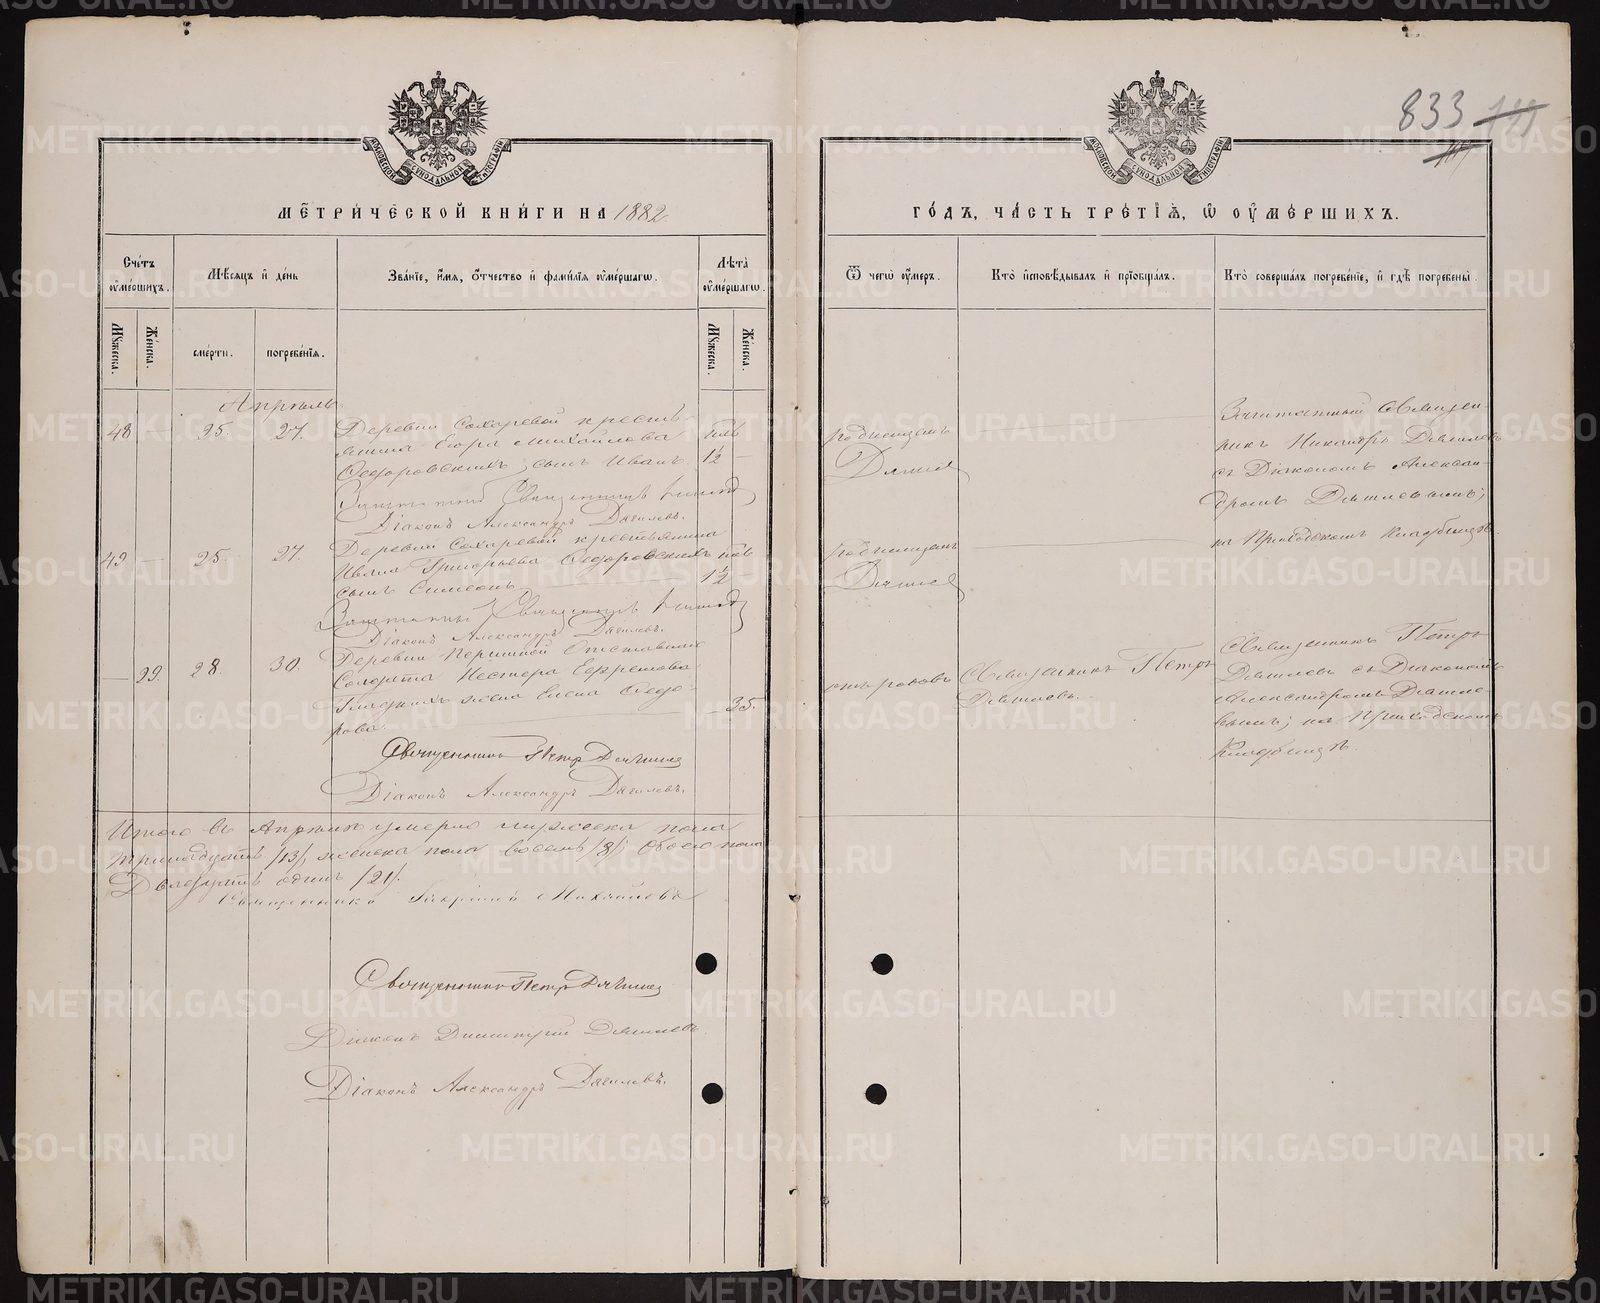 833
МЕТРИЧЕСКОЙ КНИГИ НА 1882
ГОДЪ, ЧАСТЬ ТРЕТІЯ, Ѡ ОУМЕРШИХЪ.
МОСКОВСКОЙ СѴНОДАЛЬНОЙ ТИПОГРАФІИ
МОСКОВСКОЙ СѴНОДАЛЬНОЙ ТИПОГРАФІИ
Счетъ оумершихъ.
Мѣсяцъ и день
Званіе, имя, отчество и фамилія оумершагѡ.
Лѣта оумершагѡ.
Мужеска.
Женска.
смерти.
погребенія.
Мужеска.
Женска.
Апрѣль
48 — 25. 27. Деревни Сахаревой кресть-
янина Егора Михайлова
Ѳедоровскихъ, сынъ Иванъ. 1½ —
Заштатный Священникъ
Діаконъ Александръ Дягилевъ.
49 — 25. 27. Деревни Сахаревой крестьянина
Ивана Григорьева Ѳедоровскихъ
сынъ Симеонъ 1½
Заштатный Священникъ
Діаконъ Александръ Дягилевъ.
— 99. 28. 30. Деревни Першиной Отставнаго
Солдата Нестера Ефремова
Гладкихъ жена Елена Ѳедо-
рова. 35.
Священникъ Петръ Дягилевъ
Діаконъ Александръ Дягилевъ.
Итого въ Апрѣлѣ умерло мужеска пола
тринадцать /13/, женска пола восемь /8/; обоего пола
Двадцать одинъ /21/.
Священникъ Михайловъ
Священникъ Петръ Дягилевъ
Діаконъ Димитрій Дягилевъ.
Діаконъ Александръ Дягилевъ.
Ѿ чегѡ оумеръ.
Кто исповѣдывалъ и пріобщалъ.
Кто совершалъ погребеніе, и гдѣ погребены.
Заштатный Священ-
никъ Никандръ Дягилевъ
съ Діакономъ Алексан-
дромъ Дягилевымъ;
на Приходскомъ кладбищѣ.
отъ родовъ
Священникъ Петръ
Дягилевъ.
Священникъ Петръ
Дягилевъ съ Діакономъ
Александромъ Дягиле-
вымъ; на Приходскомъ
Кладбищѣ.
METRIKI.GASO-URAL.RU